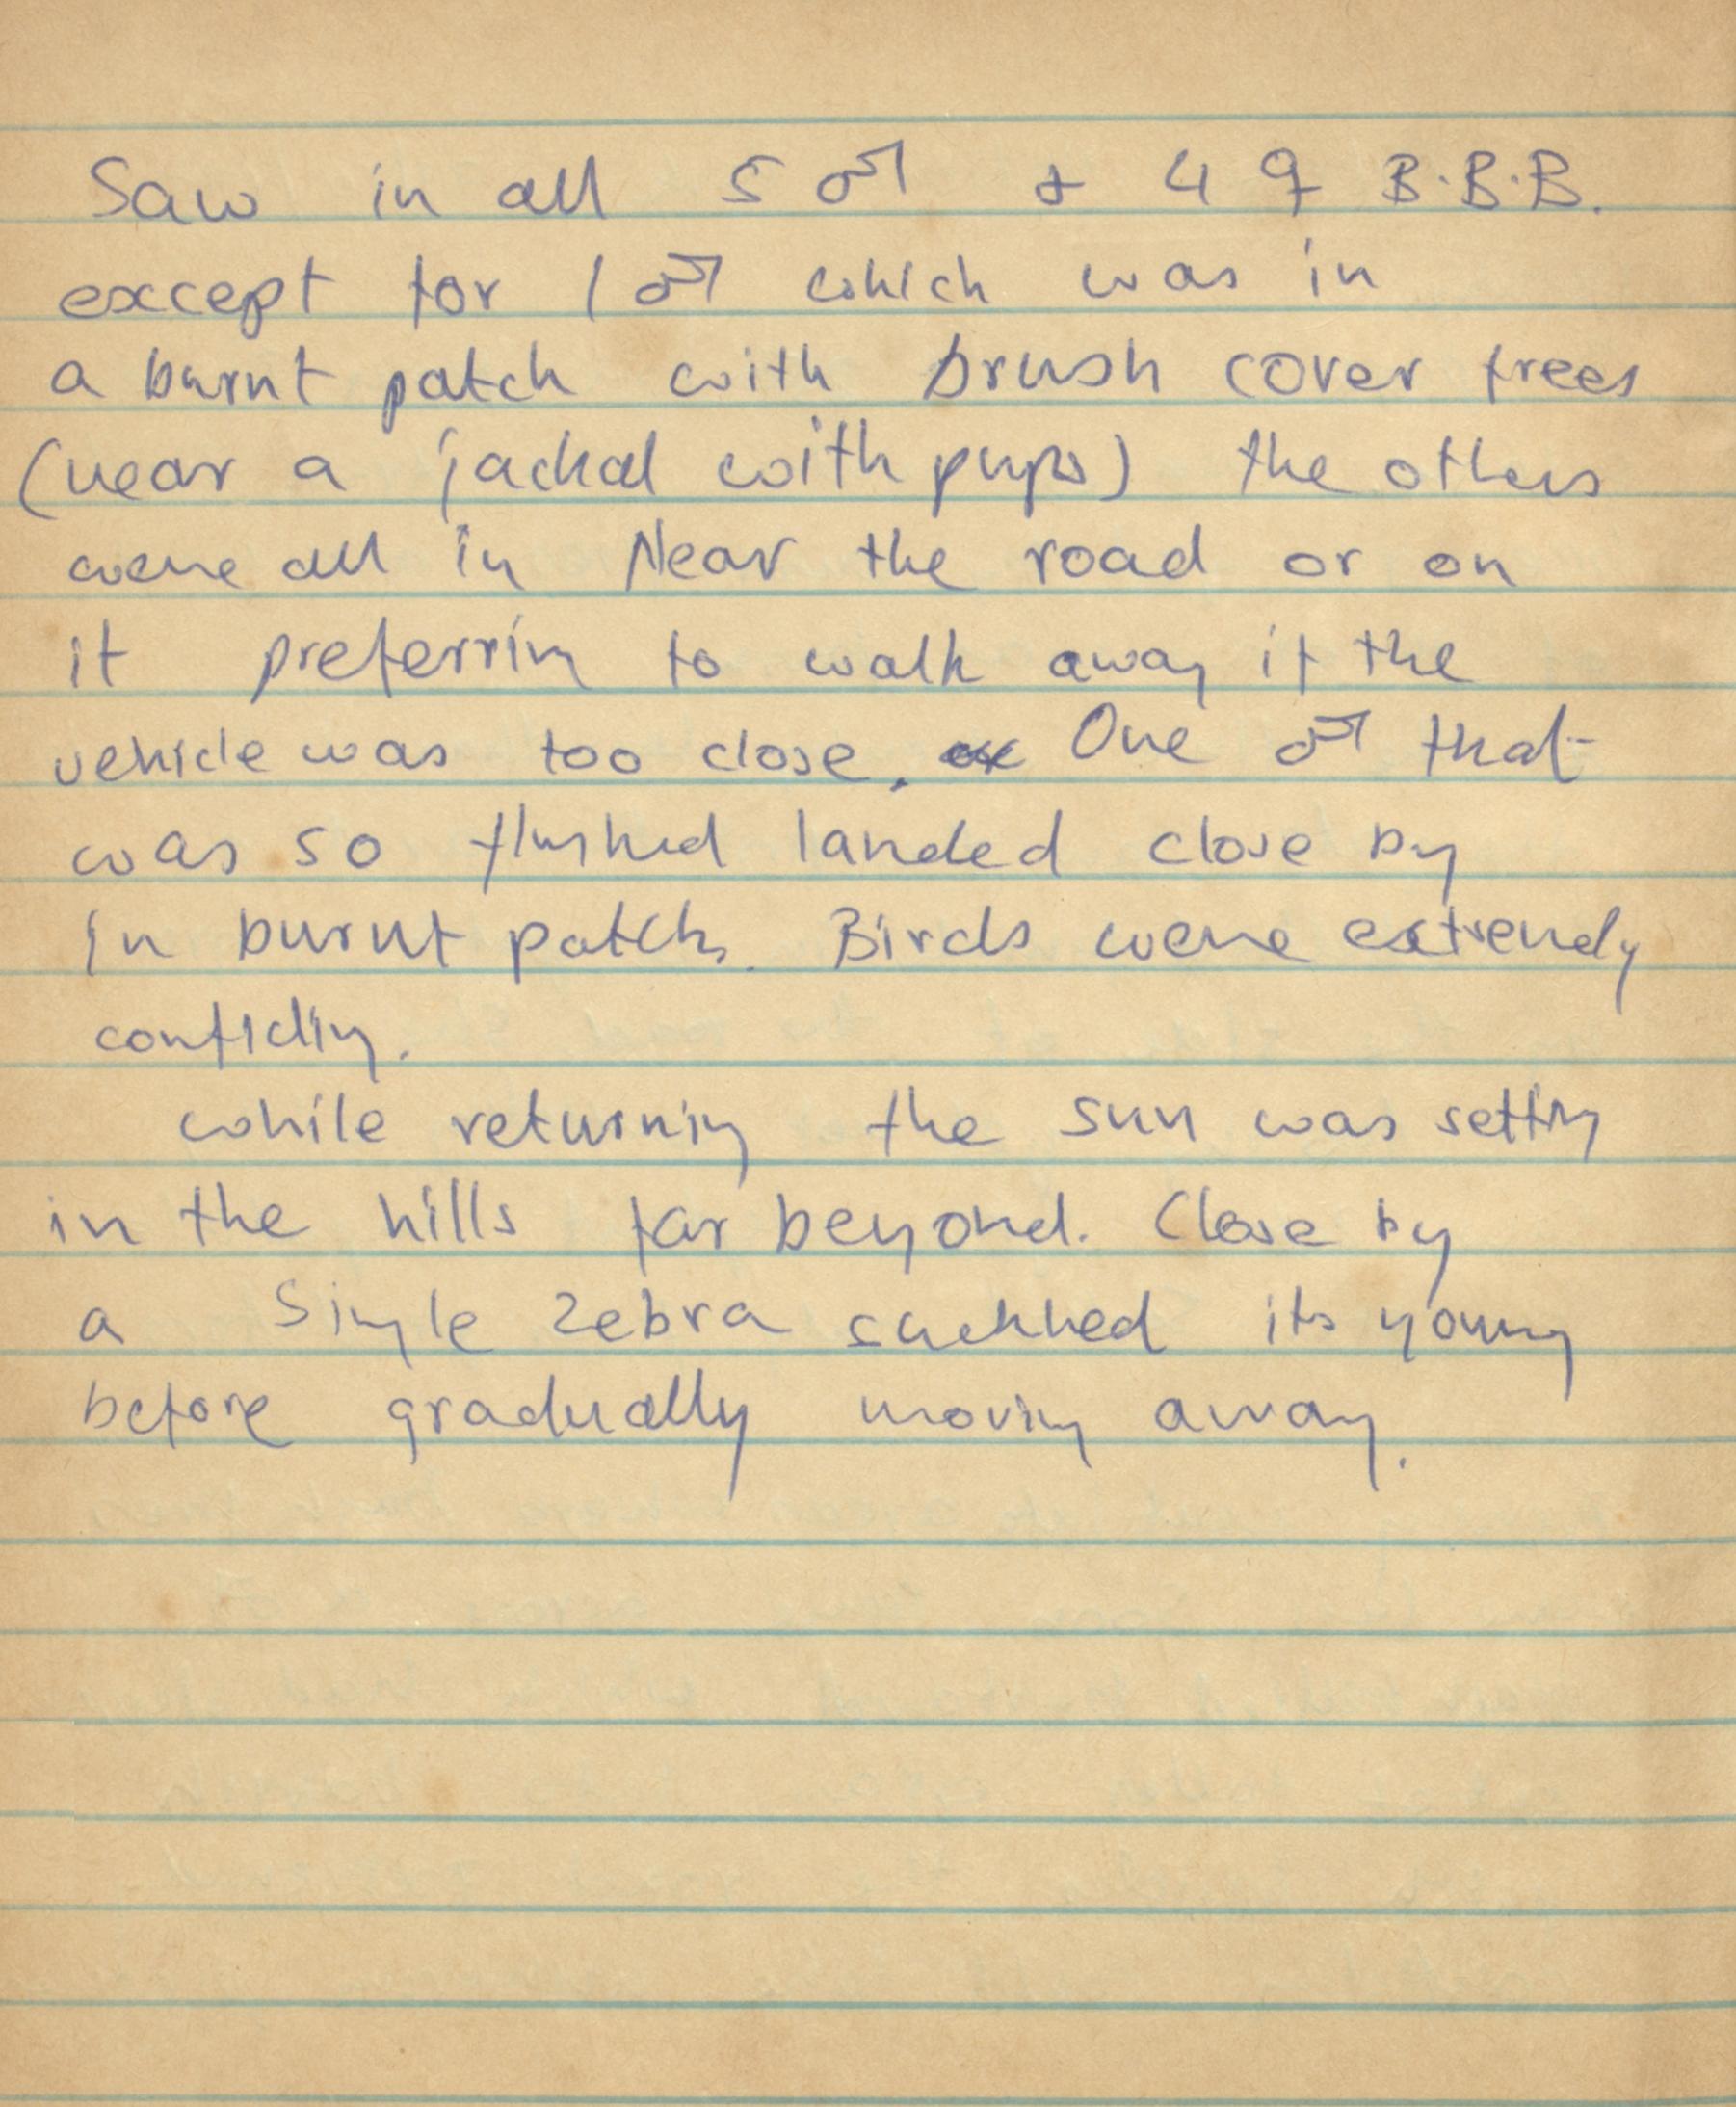 Saw in all 5 ♂ & 4 ♀ B.B.B.
except for 1 ♂ which was in
a burnt patch with brush cover trees
(near a jackal with pups) the others
were all in Near the road or on
it preferring to walk away if the
vehicle was too close. One ♂ that
was so flushed landed close by
in burnt patch. Birds were extremely
confiding.
while returning the sun was setting
in the hills far beyond. Close by
a Single zebra suckled its young
before gradually moving away.